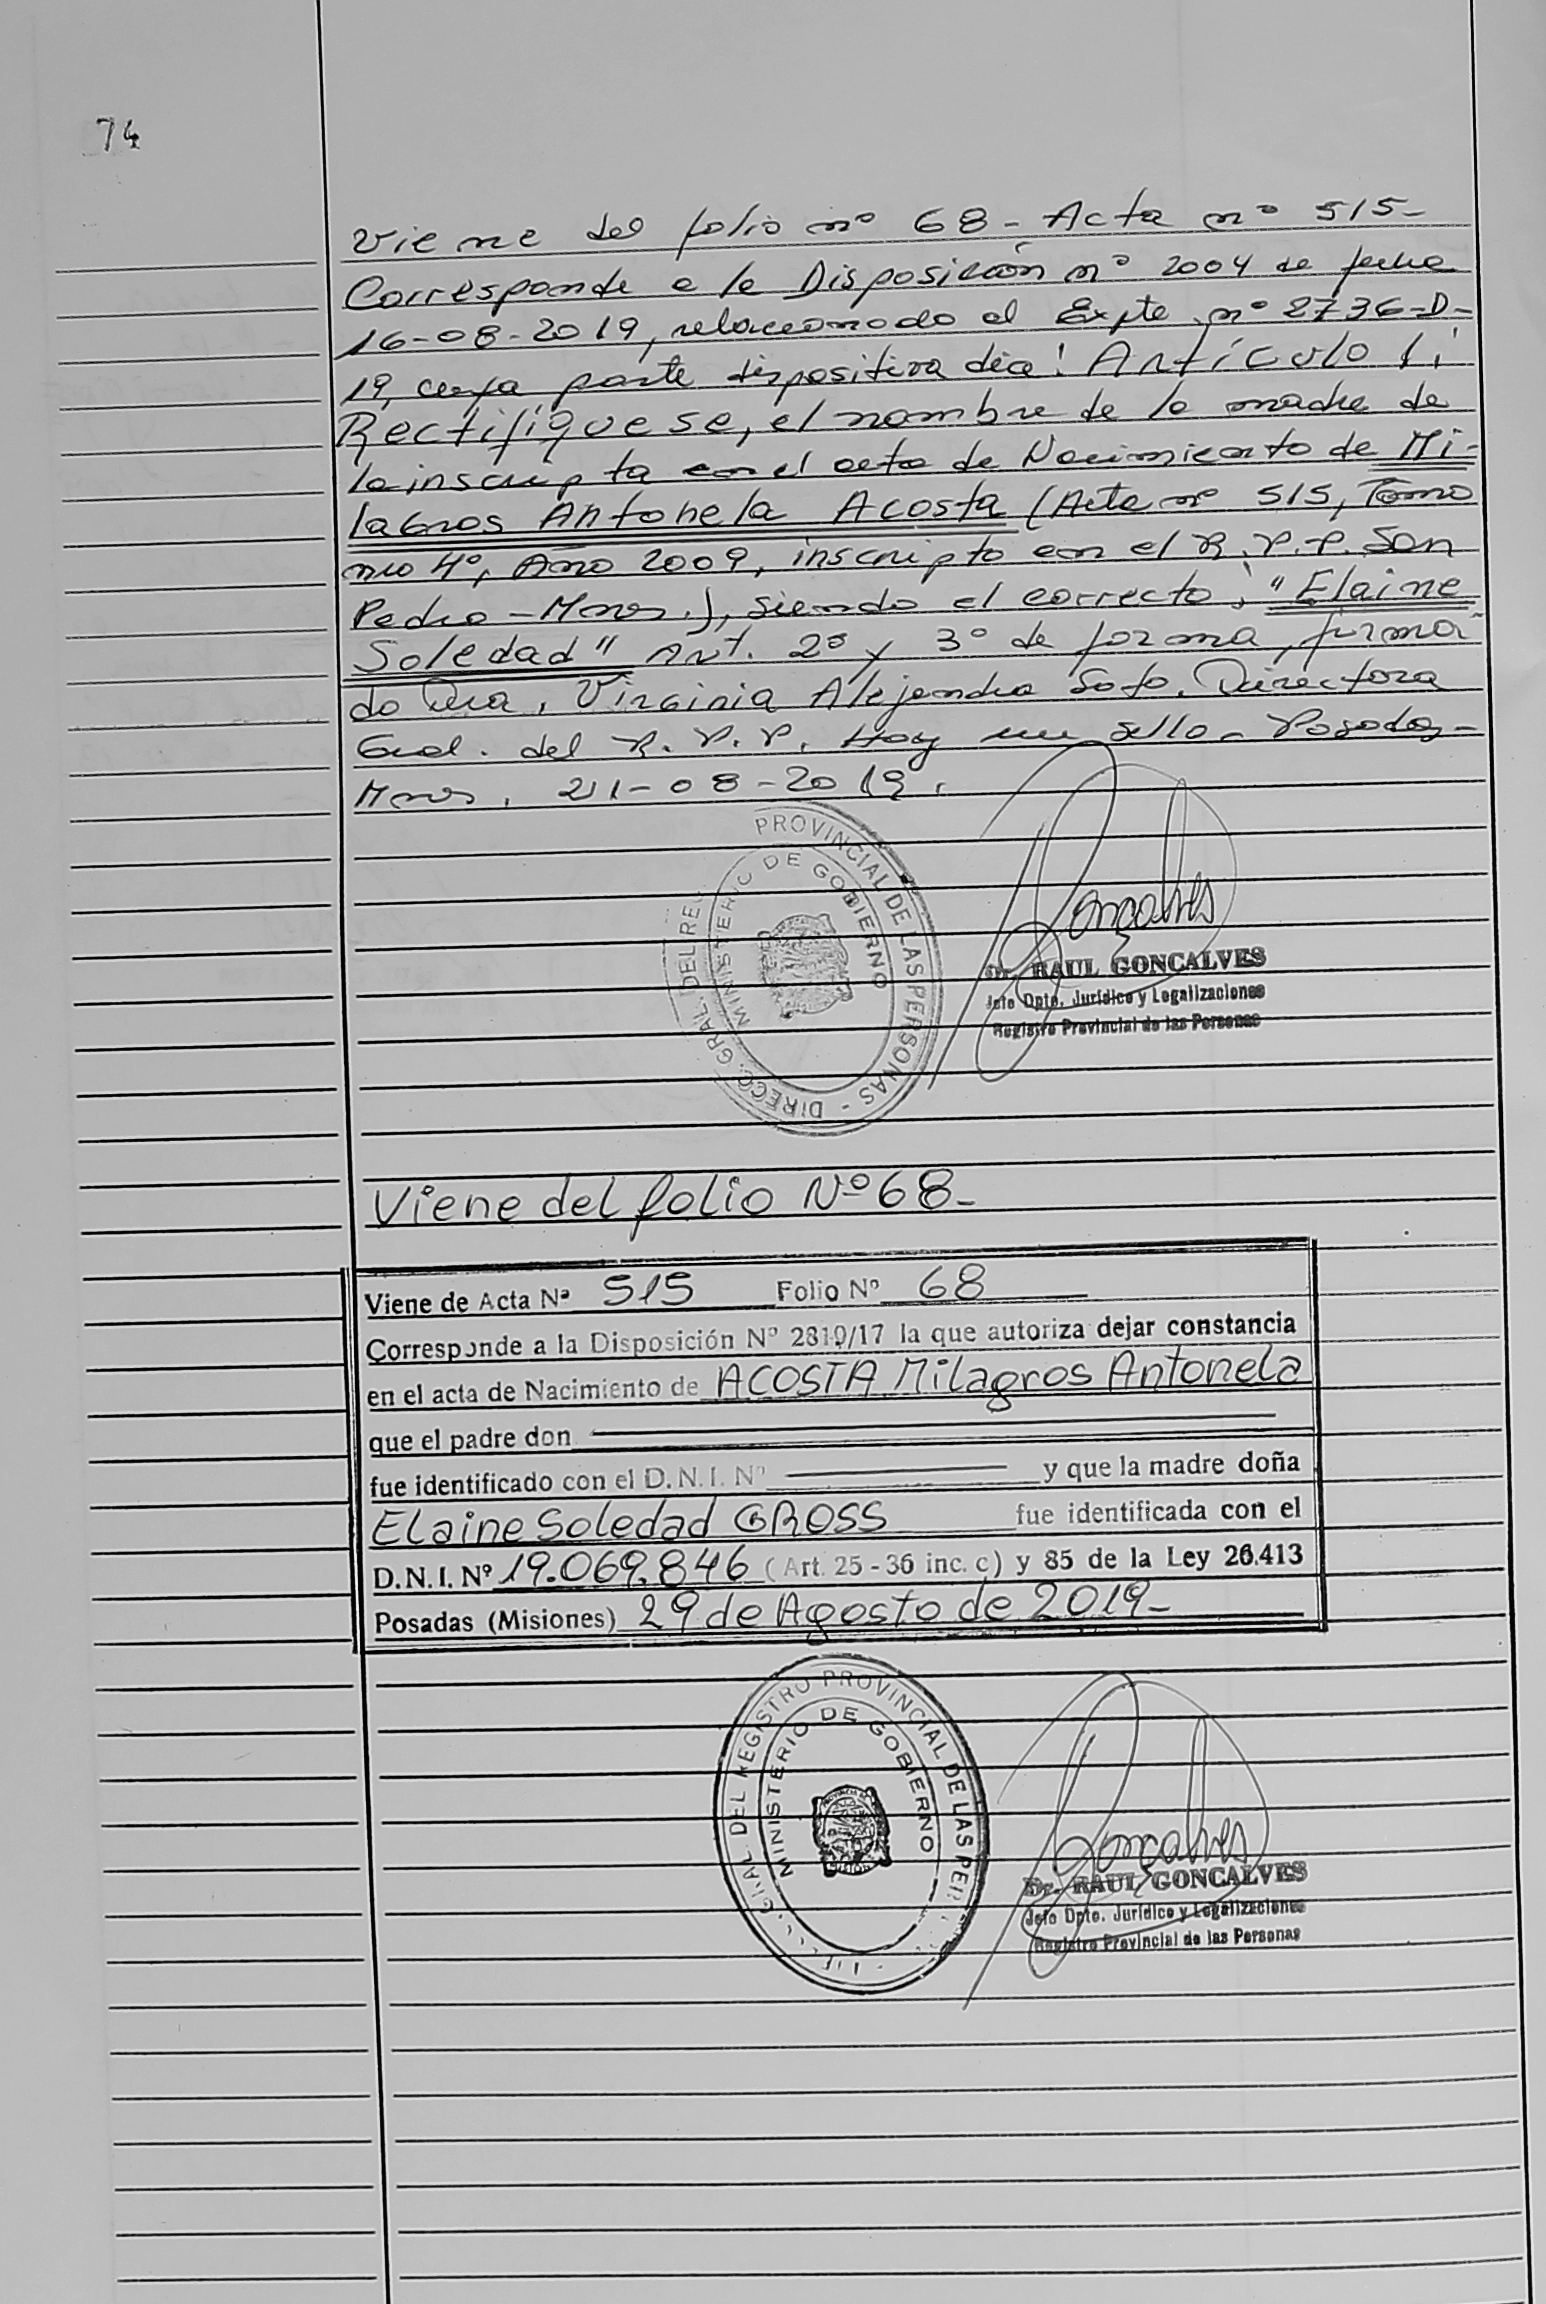 74
Viene del folio nº 68 - Acta nº 515 -
Corresponde a la Disposición nº 2004 de fecha
16-08-2019, relacionado al Expte. nº 2736-D-
19, cuya parte dispositiva dice: Artículo 1:
Rectifíquese, el nombre de la madre de
la inscripta en el acta de Nacimiento de Mi-
lagros Antonela Acosta (Acta nº 515, Tomo
4º, Año 2009, inscripto en el R.P.P. San
Pedro - Mnes.), siendo el correcto: "Elaine
Soledad" Art. 2º y 3º de forma, firma-
do Dra. Virginia Alejandra Soto. Directora
Gral. del R.P.P. Hay un sello - Posadas -
Mnes. 21-08-2019.
PROVINCIAL DE LAS PERSONAS - DIRECC. GRAL. DEL REG
MINISTERIO DE GOBIERNO
Goncalves
Dr. RAUL GONCALVES
Jefe Dpto. Jurídico y Legalizaciones
Registro Provincial de las Personas
Viene del folio Nº 68-
Viene de Acta Nº 515 Folio Nº 68
Corresponde a la Disposición Nº 2810/17 la que autoriza dejar constancia
en el acta de Nacimiento de ACOSTA Milagros Antonela
que el padre don
fue identificado con el D.N.I. Nº y que la madre doña
Elaine Soledad GROSS fue identificada con el
D.N.I. Nº 19.069.846 (Art. 25 - 36 inc. c) y 85 de la Ley 26.413
Posadas (Misiones) 29 de Agosto de 2019-
GRAL. DEL REGISTRO PROVINCIAL DE LAS PER
MINISTERIO DE GOBIERNO
Goncalves
Dr. RAUL GONCALVES
Jefe Dpto. Jurídico y Legalizaciones
Registro Provincial de las Personas